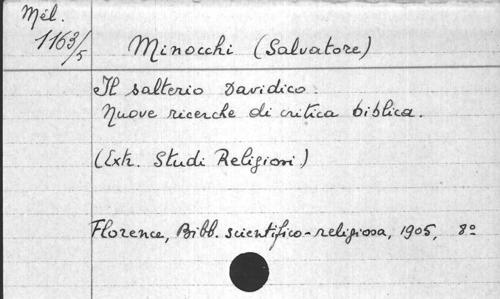 Mél.
1163/5
Minocchi (Salvatore)
Il salterio Davidico.
Nuove ricerche di critica biblica.
(Extr. Studi Religiosi)
Florence, Bibl. scientifico-religiosa, 1905, 8º